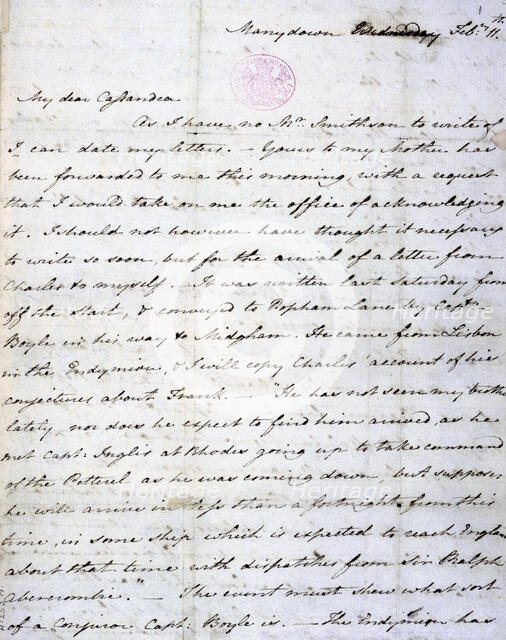 Manydown Wednesday Feb:ry 11.th
My dear Cassandra
As I have no Mr. Smithson to write of
I can date my letters. — Yours to my Mother has
been forwarded to me this morning, with a request
that I would take on me the office of acknowledging
it. I should not however have thought it necessary
to write so soon, but for the arrival of a letter from
Charles to myself. — It was written last Saturday from
off the Start, & conveyed to Popham Lane by Captn.
Boyle in his way to Midgham. He came from Lisbon
in the Endymion, & I will copy Charles' account of his
conjectures about Frank. — "He has not seen my brother
lately, nor does he expect to find him arrived, as he
met Capt: Inglis at Rhodes going up to take command
of the Petterel as he was coming down, but supposes
he will arrive in less than a fortnight from this
time, in some ship which is expected to reach England
about that time with dispatches from Sir Ralph
Abercrombie." — The event must shew what sort
of a Conjuror Capt: Boyle is. — The Endymion has